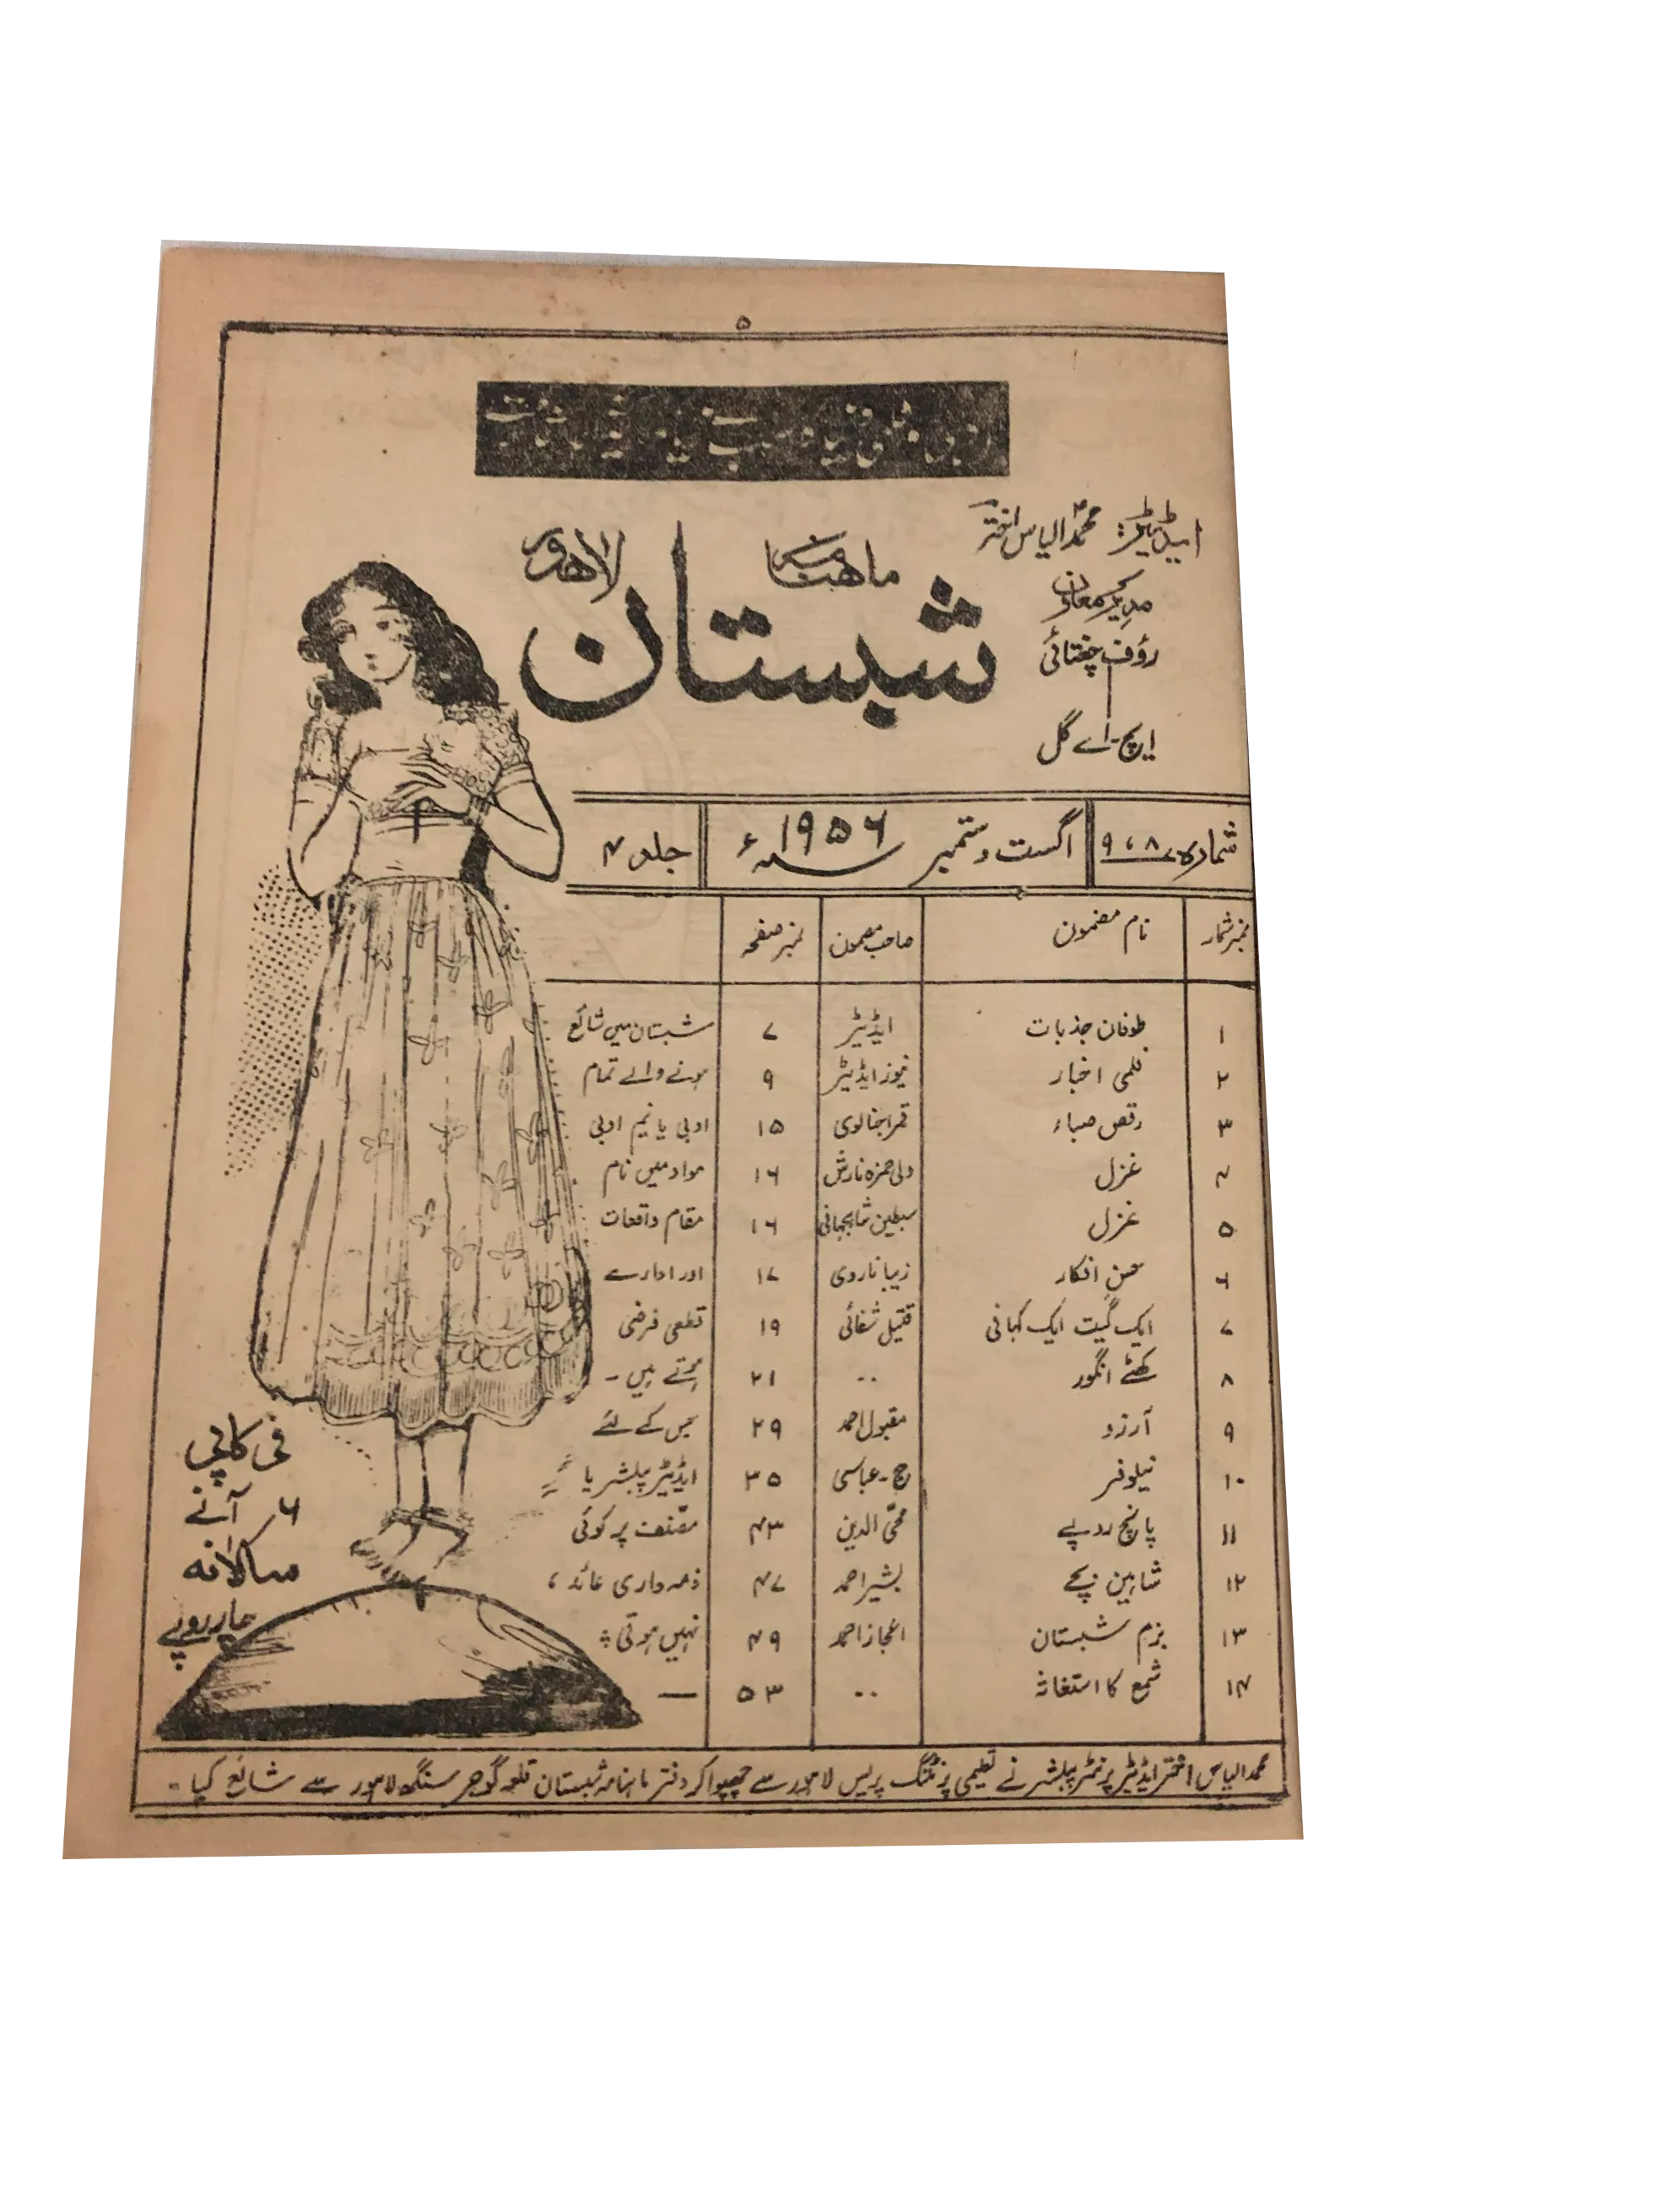 ۵
ایڈیٹر: محمد الیاس اختر
ماہنامہ
لاھور
شبستان
مدیر معاون
رؤف چغتائی
ایچ۔اے گل
شمارہ ۸، ۹
اگست و ستمبر ۱۹۵۶ء
جلد ۴
نمبر شمار نام مضمون صاحب مضمون نمبر صفحہ
۱ طوفان جذبات ایڈیٹر ۷
۲ فلمی اخبار نیوز ایڈیٹر ۹
۳ رقص صباء قمر اجنالوی ۱۵
۴ غزل ولی حمزہ نازش ۱۶
۵ غزل سبطین شاہجہانی ۱۶
۶ حسنِ افکار زیبا ناروی ۱۷
۷ ایک گیت ایک کہانی قتیل شفائی ۱۹
۸ کھٹے انگور ۰۰ ۲۱
۹ آرزو مقبول احمد ۲۹
۱۰ نیلوفر ج۔عباسی ۳۵
۱۱ پانچ روپے محی الدین ۴۳
۱۲ شاہین بچے بشیر احمد ۴۷
۱۳ بزم شبستان اعجاز احمد ۴۹
۱۴ شمع کا استغاثہ ۰۰ ۵۳
شبستان میں شائع
ہونے والے تمام
ادبی یا نیم ادبی
مواد میں نام
مقام واقعات
اور ادارے
قطعی فرضی
ہوتے ہیں ۔
جس کے لئے
ایڈیٹر پبلشر یا
مصنف پر کوئی
ذمہ داری عائد
نہیں ہوتی ؞
—
فی کاپی
۶ آنے
سالانہ
چار روپے
محمد الیاس اختر ایڈیٹر پرنٹر پبلشر نے تعلیمی پرنٹنگ پریس لاہور سے چھپوا کر دفتر ماہنامہ شبستان قلعہ گوجر سنگھ لاہور سے شائع کیا ۔